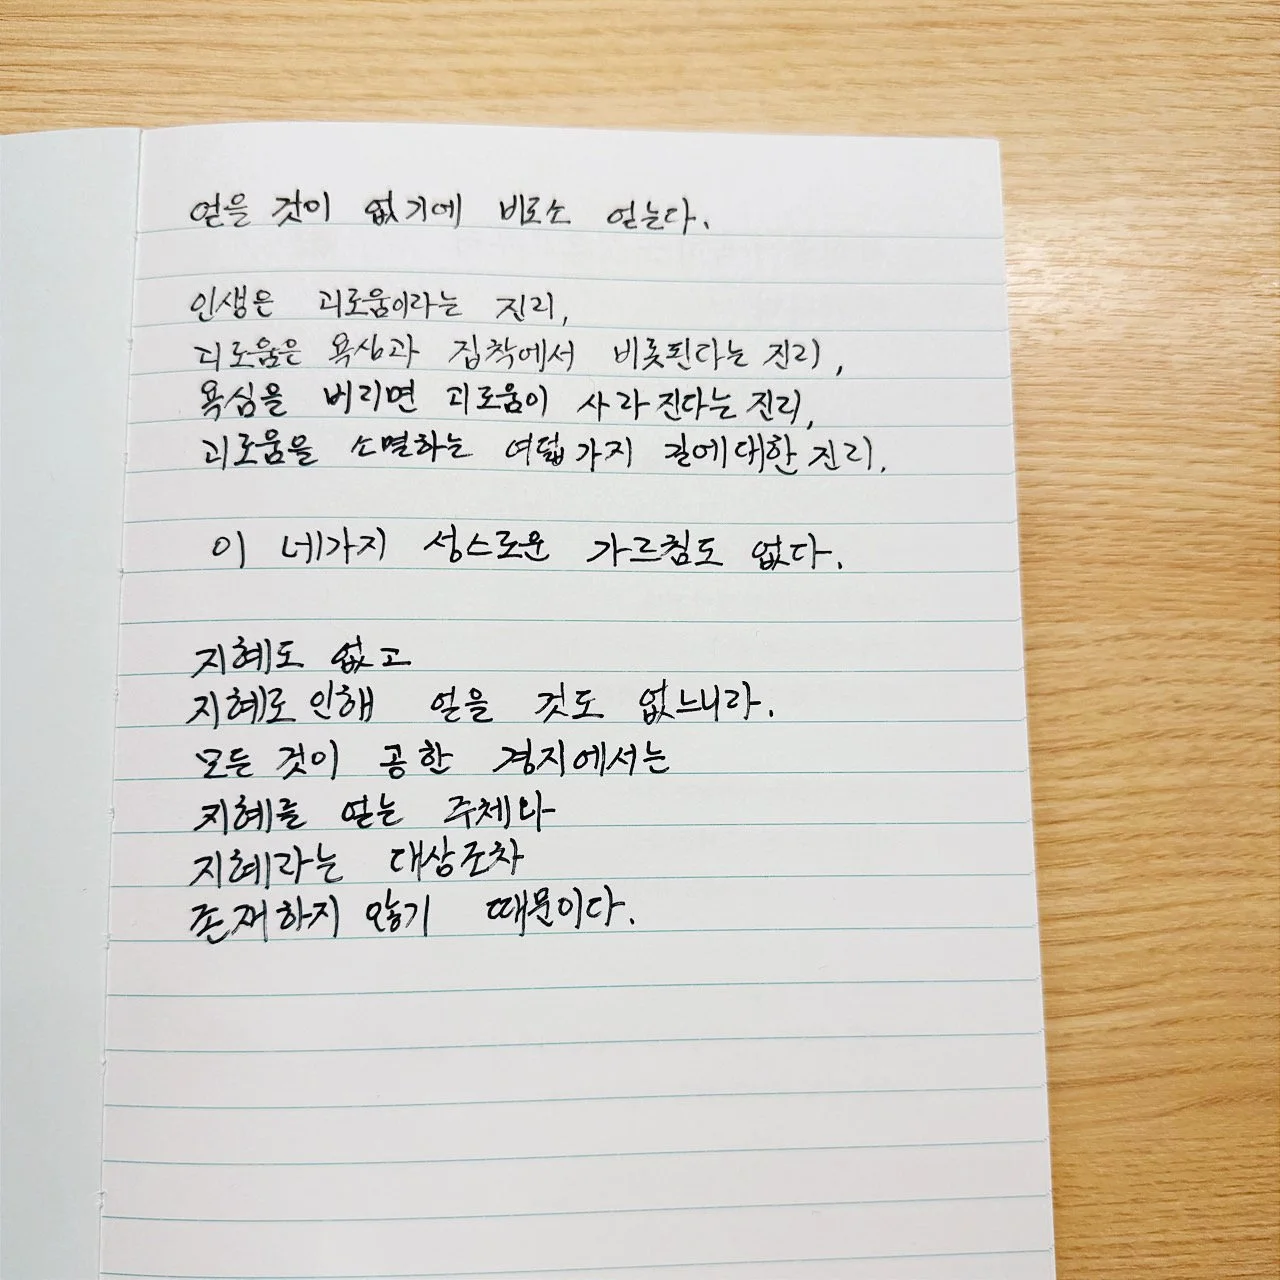 얻을 것이 없기에 비로소 얻는다.
인생은 괴로움이라는 진리,
괴로움은 욕심과 집착에서 비롯된다는 진리,
욕심을 버리면 괴로움이 사라진다는 진리,
괴로움을 소멸하는 여덟가지 길에 대한 진리.
이 네가지 성스로운 가르침도 없다.
지혜도 없고
지혜로 인해 얻을 것도 없느니라.
모든 것이 공한 경지에서는
지혜를 얻는 주체나
지혜라는 대상조차
존재하지 않기 때문이다.